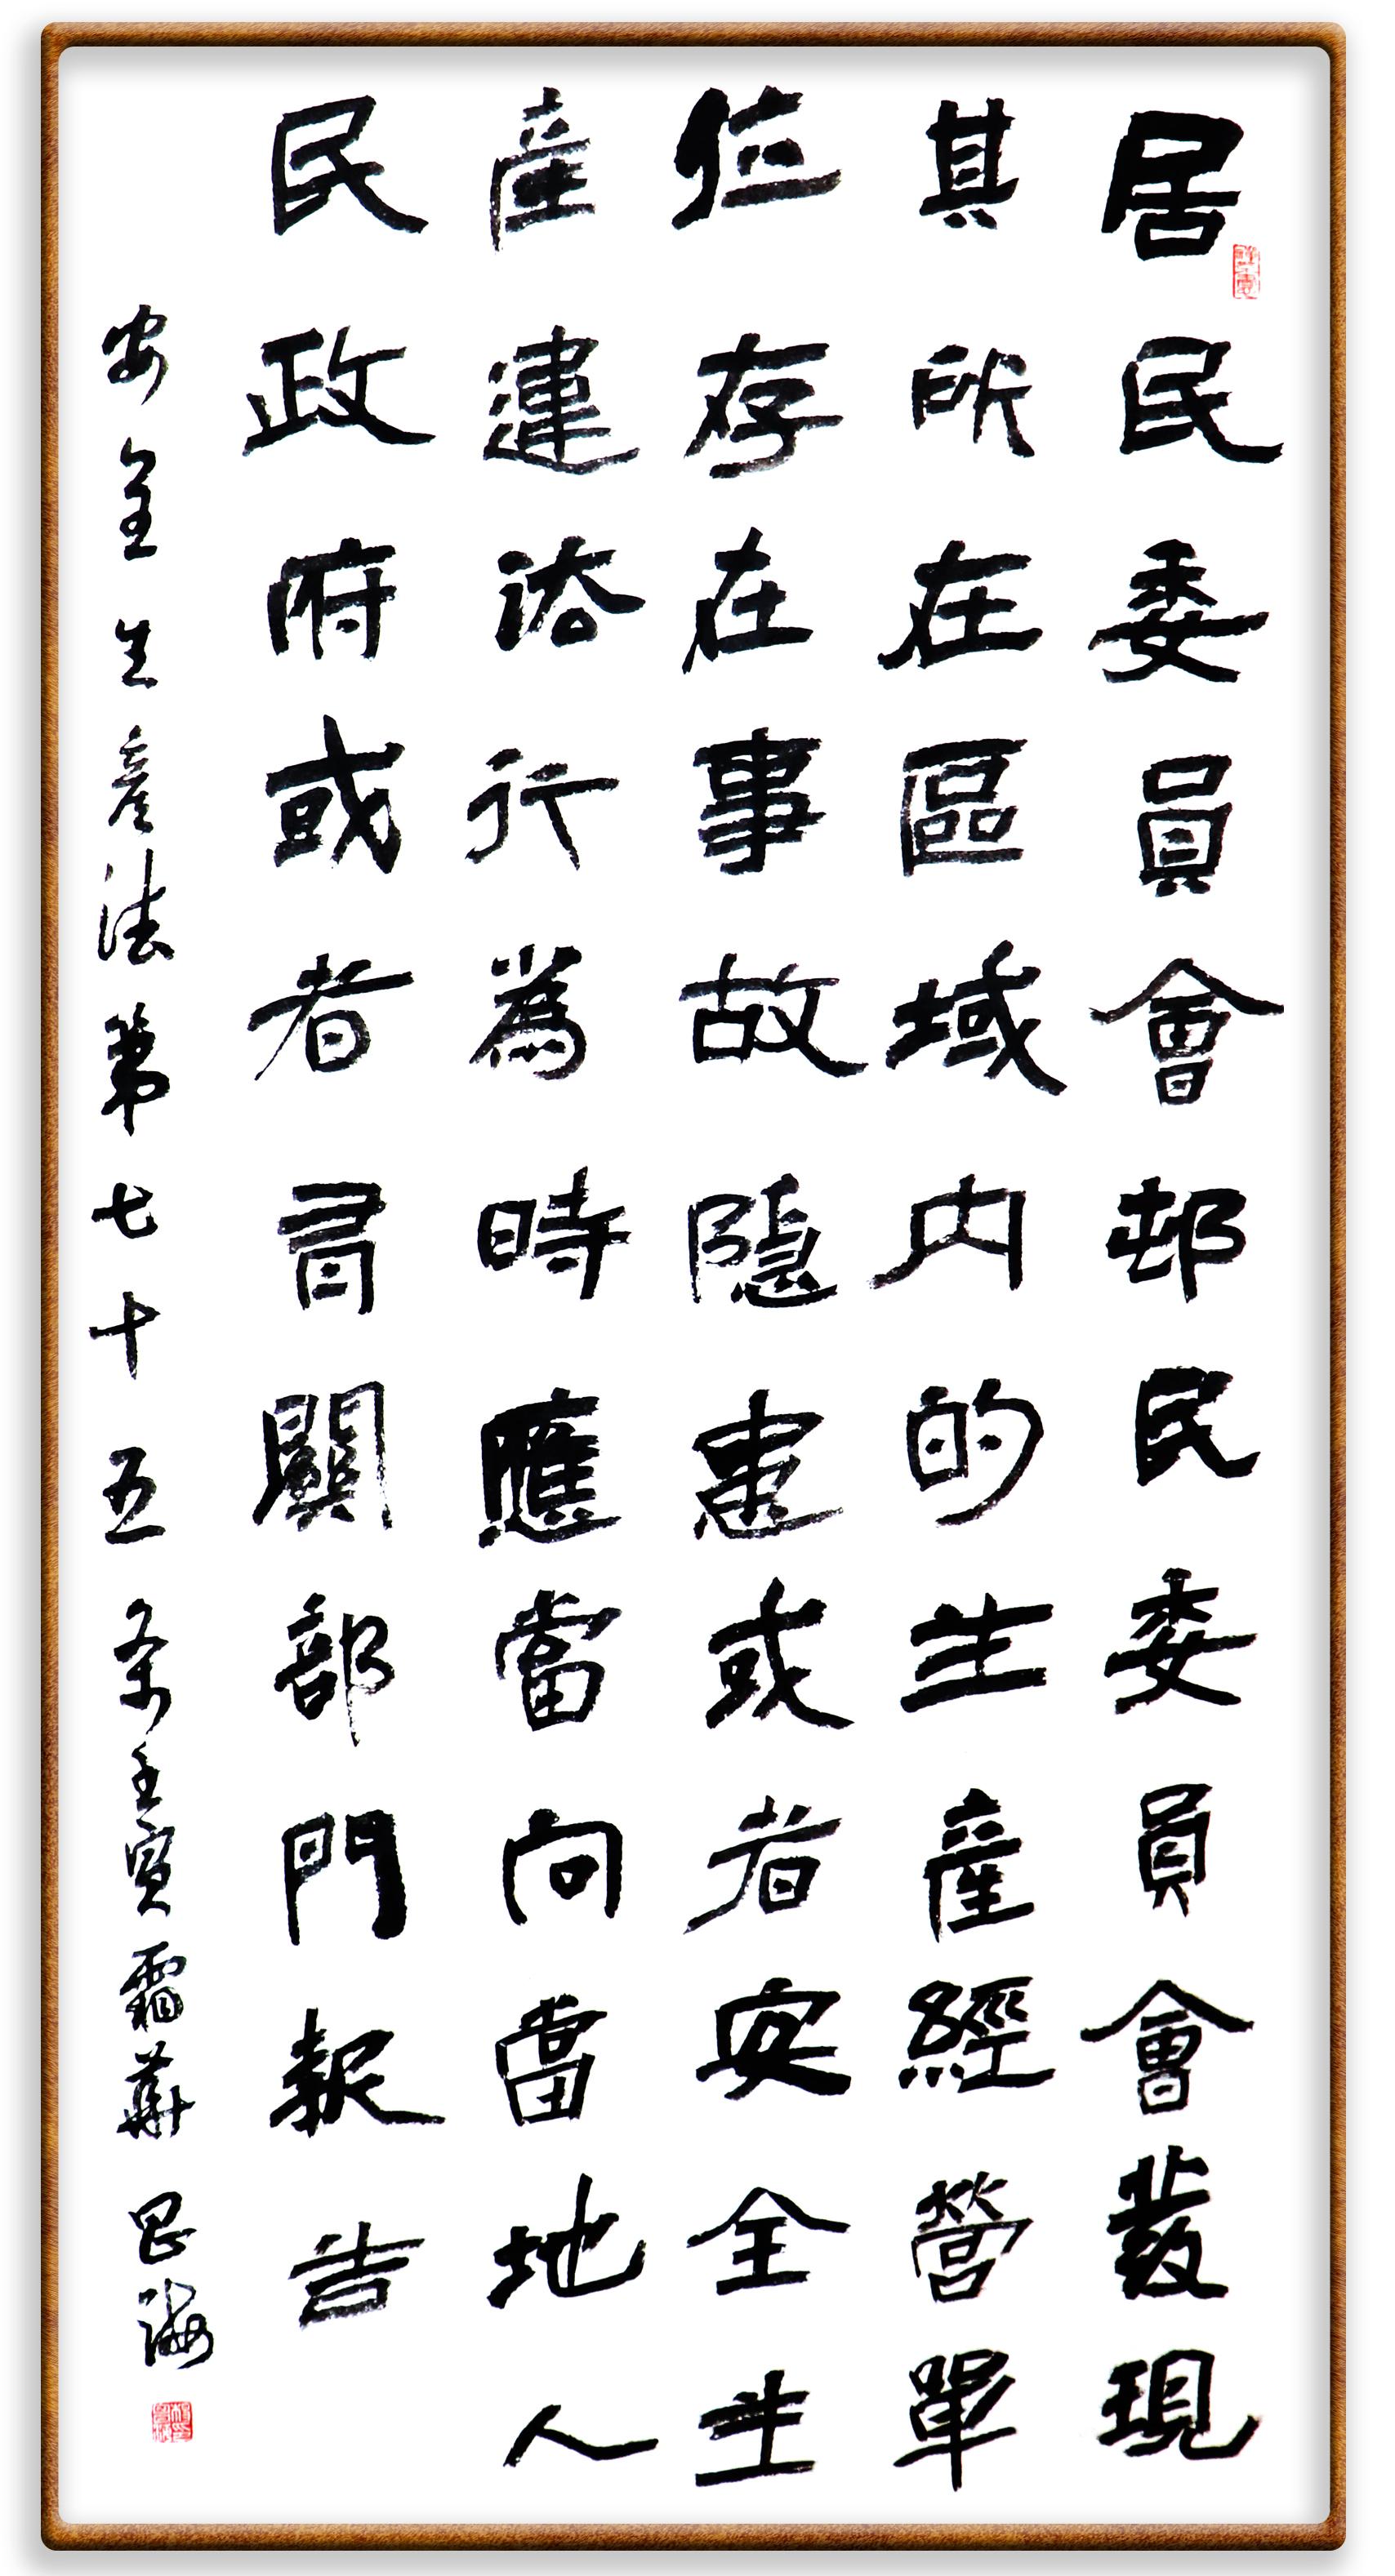 居民委員會邨民委員會發現
其所在區域内的生産經營單
位存在事故隱患或者安全生
産違法行為時應當向當地人
民政府或者有關部門報告
安全生産法第七十五条壬寅霜華